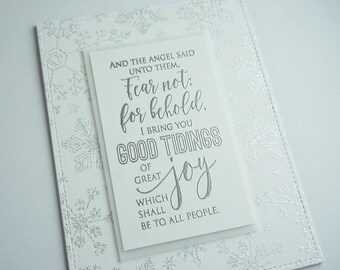 AND THE ANGEL SAID
UNTO THEM,
Fear not:
for behold,
I BRING YOU
GOOD TIDINGS
OF
GREAT joy
WHICH
SHALL
BE TO ALL PEOPLE.